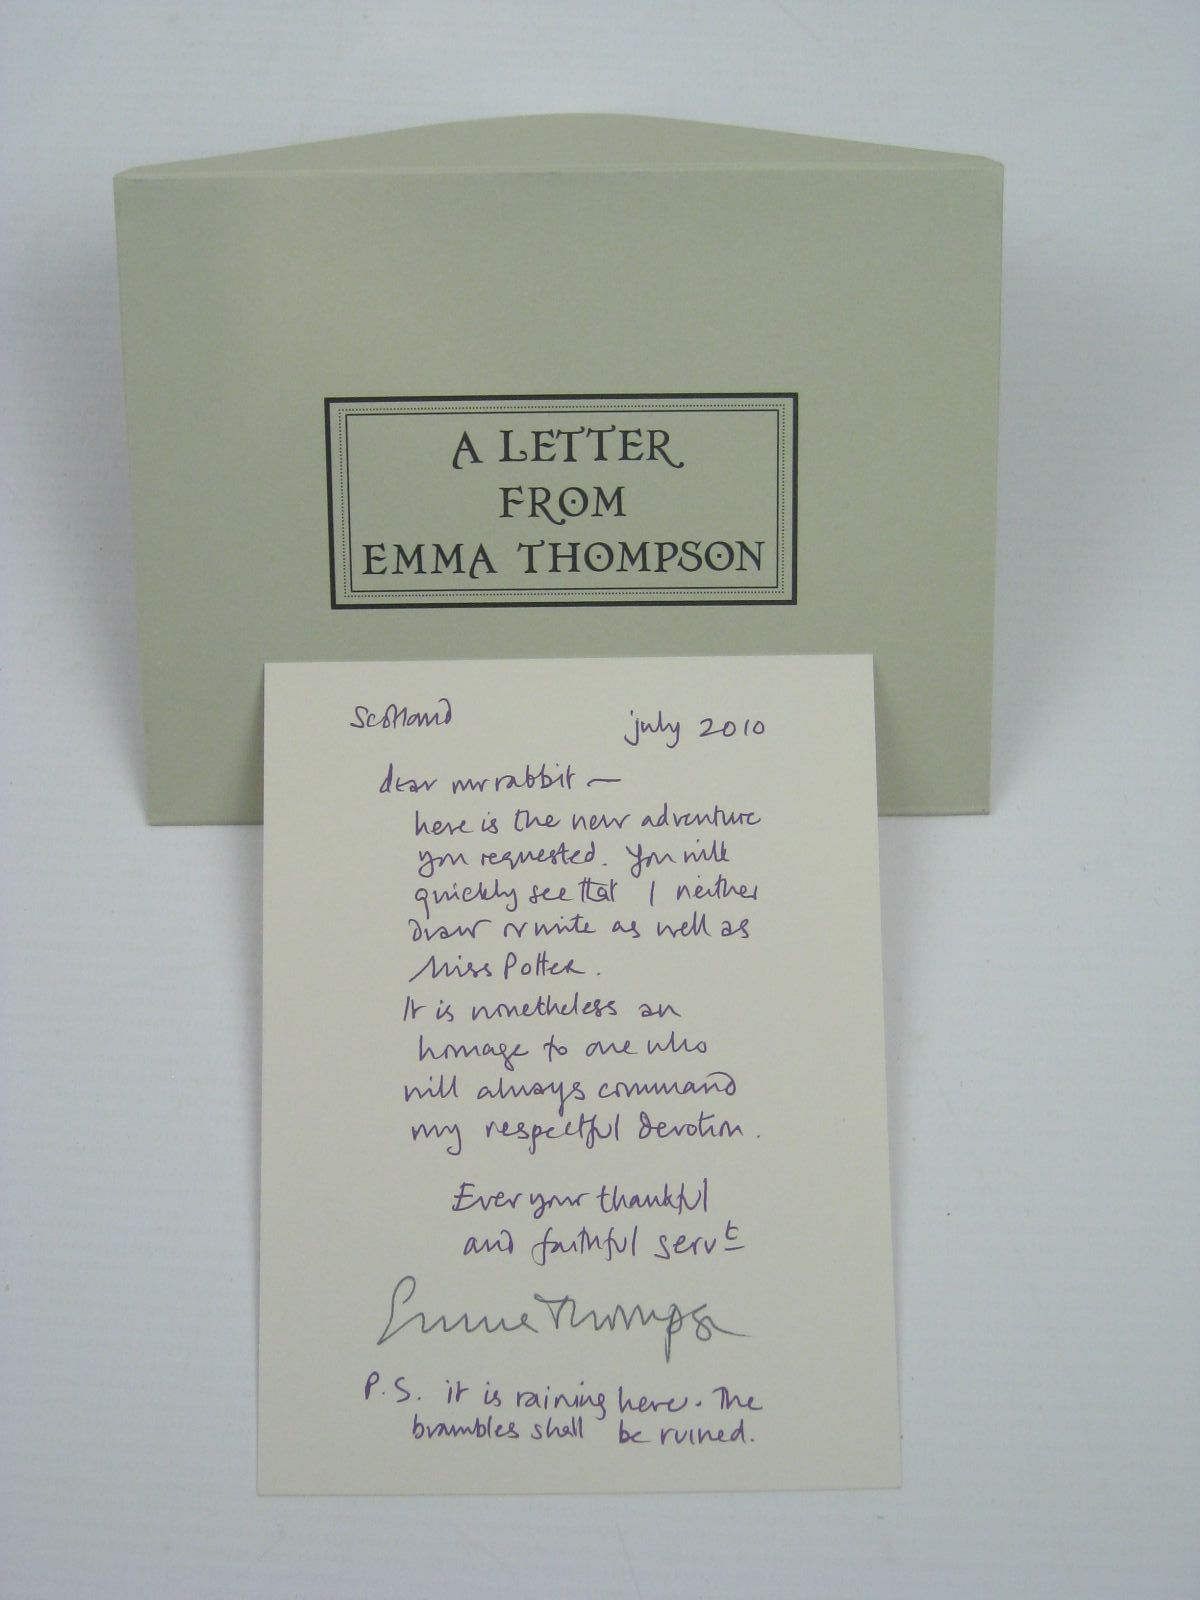 A LETTER
FROM
EMMA THOMPSON
Scotland july 2010
dear mr rabbit —
here is the new adventure
you requested. You will
quickly see that I neither
draw or write as well as
Miss Potter.
It is nonetheless an
homage to one who
will always command
my respectful devotion.
Ever your thankful
and faithful servt
Emma Thompson
P.S. it is raining here. The
brambles shall be ruined.